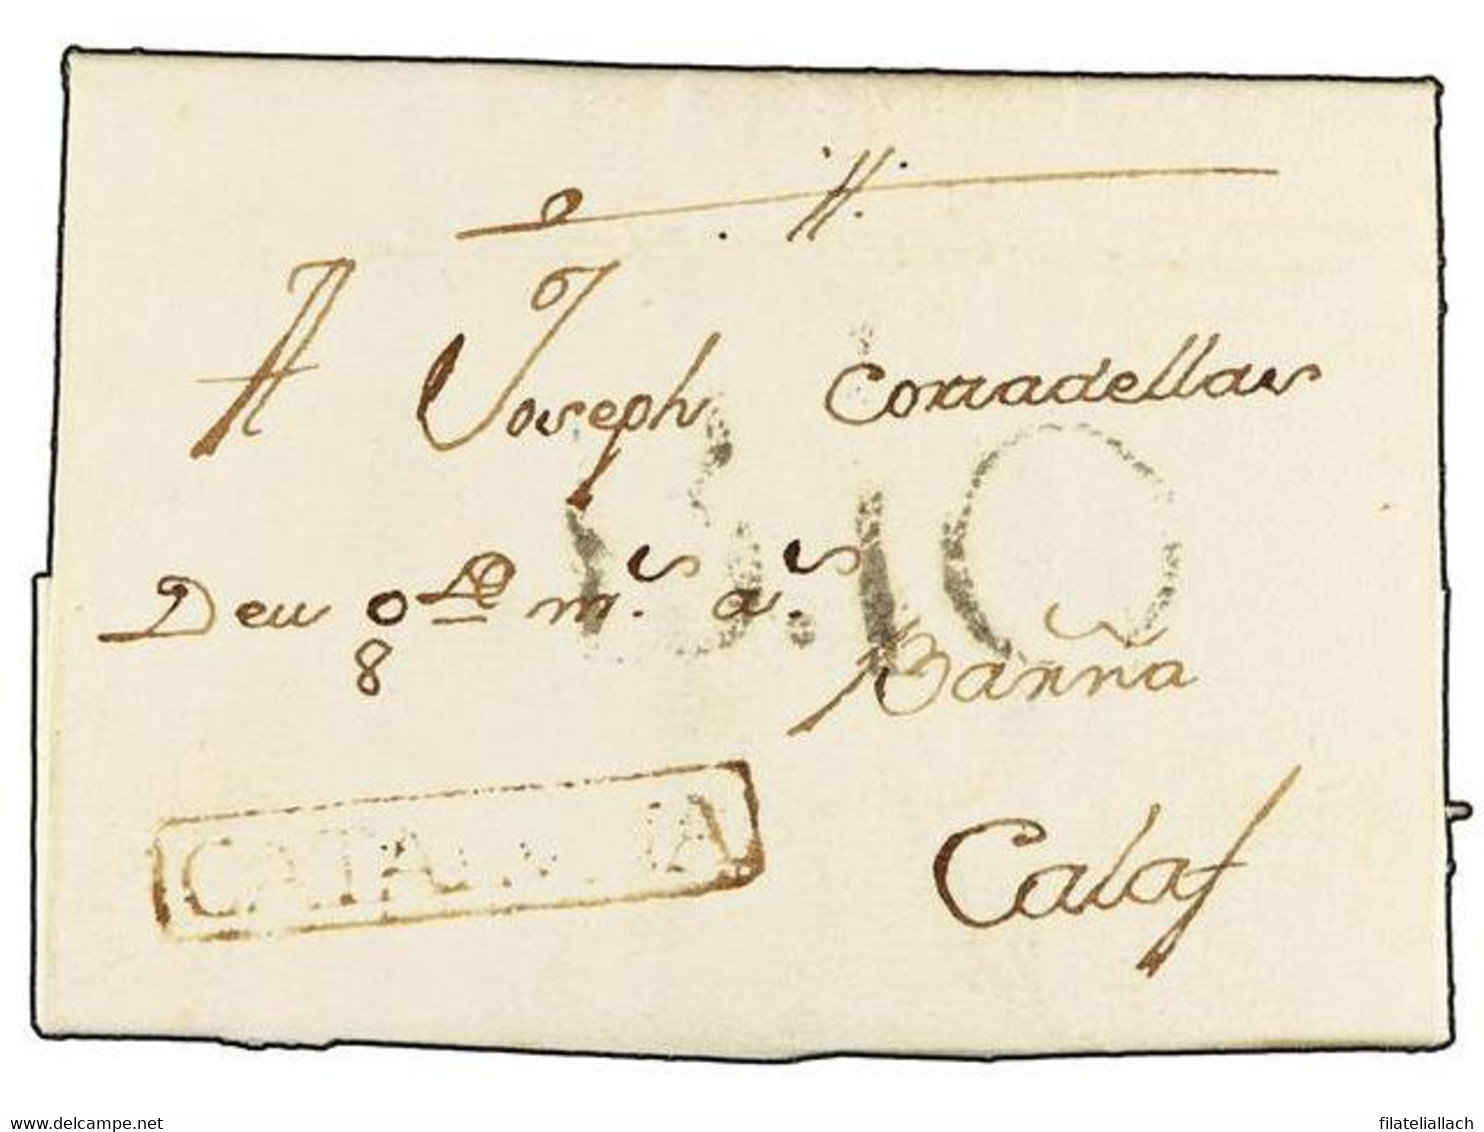 A Joseph Corradellas
Deu gde ms. as.
8
Barñña
Calaf
CATALUÑA
www.delcampe.net
filateliallach